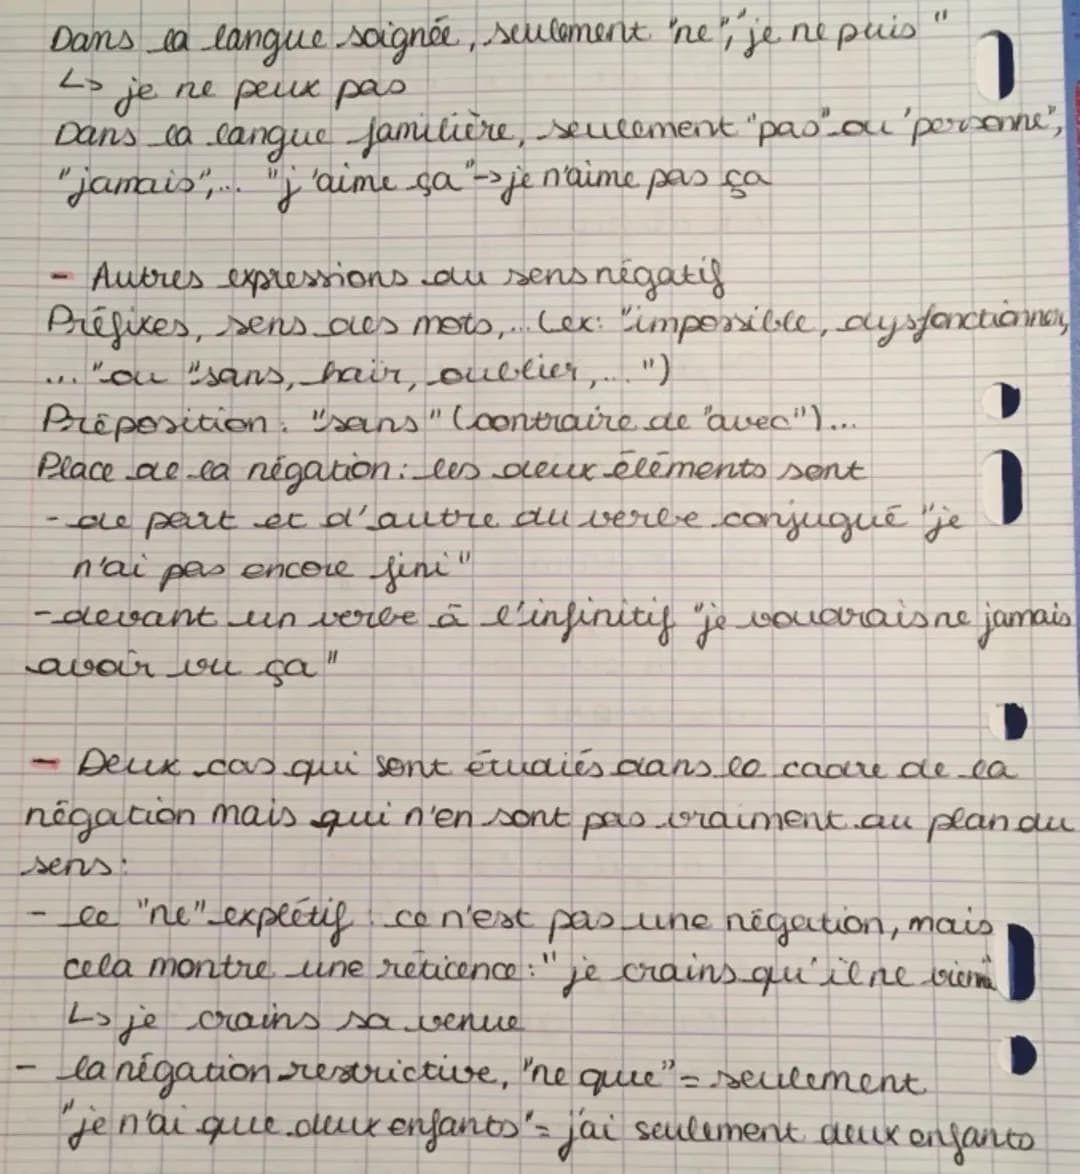 Dans la langue soignée, seulement "ne", "je ne puis"
↳ je ne peux pas
Dans la langue familière, seulement "pas" ou 'personne",
"jamais",... "j'aime ça"→je n'aime pas ça
- Autres expressions du sens négatif
Préfixes, sens des mots,... (ex: "impossible, dysfonctionner,
... "ou "sans, haïr, oublier,...")
Préposition: "sans" (contraire de "avec")...
Place de la négation: les deux éléments sont
- de part et d'autre du verbe conjugué "je
n'ai pas encore fini"
- devant un verbe à l'infinitif "je voudrais ne jamais
avoir vu ça"
- Deux cas qui sont étudiés dans le cadre de la
négation mais qui n'en sont pas vraiment au plan du
sens:
- le "ne" explétif: ce n'est pas une négation, mais
cela montre une réticence: "je crains qu'il ne vienne
↳ je crains sa venue
- la négation restrictive, "ne que" = seulement
"je n'ai que deux enfants" = j'ai seulement deux enfants